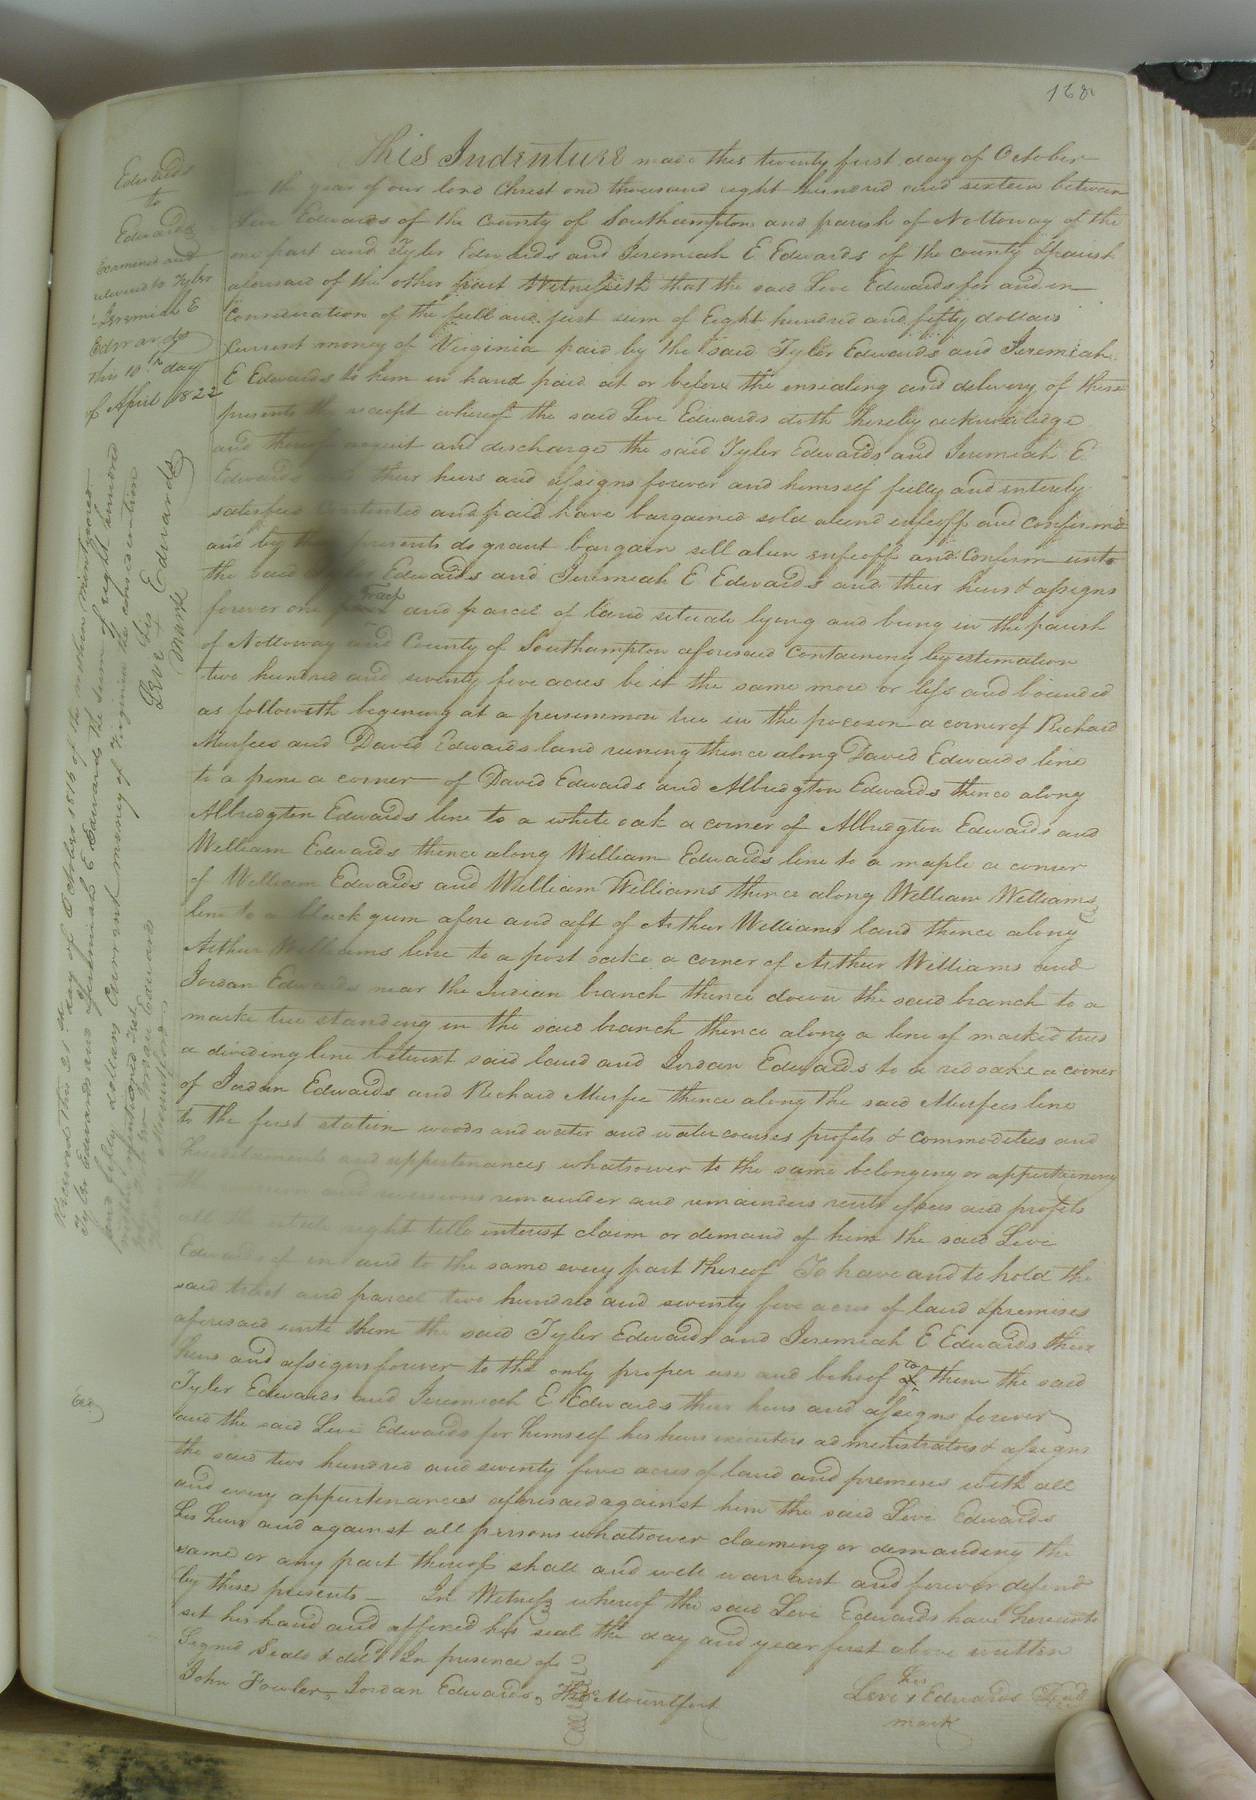 168
Edwards
to
Edwards
Examined and
delivered to Tyler
& Jeremiah E
Edwards
this 10th day
of April 1822
This Indenture made this twenty first day of October
in the year of our lord Christ one thousand eight hundred and sixteen between
Levi Edwards of the County of Southampton and parish of Nottoway of the
one part and Tyler Edwards and Jeremiah E Edwards of the county & parish
aforesaid of the other part Witnesseth that the said Levi Edwards for and in
Consideration of the full and just sum of Eight hundred and fifty dollars
Current money of Virginia paid by the said Tyler Edwards and Jeremiah
E Edwards to him in hand paid at or before the ensealing and delivery of these
presents the receipt whereof the said Levi Edwards doth hereby acknowledge
and thereof acquit and discharge the said Tyler Edwards and Jeremiah E
Edwards their heirs and assigns forever and himself fully and interely
satisfied Contented and paid have bargained sold aliend enfeoff and confirmd
and by these presents do grant bargain sell alien enfeoff and Confirm unto
the said Tyler Edwards and Jeremiah E Edwards and their heirs & assigns
forever one tract and parcel of land situate lying and being in the parish
of Nottoway and County of Southampton aforesaid Containing by estimation
two hundred and seventy five acres be it the same more or less and bounded
as followeth begening at a persimmon tree in the pocoson a corner of Richard
Murfees and David Edwards land runing thence along David Edwards line
to a pine a corner of David Edwards and Albridgton Edwards thence along
Albridgton Edwards line to a white oak a corner of Albridgton Edwards and
William Edwards thence along William Edwards line to a maple a corner
of William Edwards and William Williams thence along William Williams
line to a black gum afore and aft of Arthur Williams land thence along
Arthur Williams line to a post oake a corner of Arthur Williams and
Jordan Edwards near the Indian branch thence down the said branch to a
marke tree standing in the said branch thence along a line of marked trees
a dividing line betwixt said land and Jordan Edwards to a red oake a corner
of Jordan Edwards and Richard Murfee thence along the said Murfees line
to the first station woods and water and water courses profets & commodities and
hereditaments and appurtenances whatsoever to the same belonging or appertaining
and reversions remainder and remainders rents issues and profets
all the estate right title interest claim or demand of him the said Levi
Edwards of in and to the same every part thereof To have and to hold the
said tract and parcel two hundred and seventy five acres of land & premises
aforesaid unto them the said Tyler Edwards and Jeremiah E Edwards their
heirs and assigns forever to the only proper use and behoof to them the said
Tyler Edwards and Jeremiah E Edwards their heirs and assigns forever
and the said Levi Edwards for himself his heirs executors administrators & assigns
the said two hundred and seventy five acres of land and premises with all
and every appurtenances aforesaid against him the said Levi Edwards
his heirs and against all persons whatsoever claiming or demanding the
same or any part thereof shall and will warrant and forever defend
by these presents — In Witness whereof the said Levi Edwards have hereunto
set his hand and affixed his seal the day and year first above written
Signd Seald & deld In presence of
John Fowler, Jordan Edwards, Mountfort
his
Levi x Edwards Seal
mark
Received this 21st day of October 1816 of the within mentioned
Tyler Edwards and Jeremiah E Edwards the sum of eight hundred
and fifty dollars Current money of Virginia the consideration
within mentioned
Levi his x Edwards
mark
Jordan Edwards
Mountfort